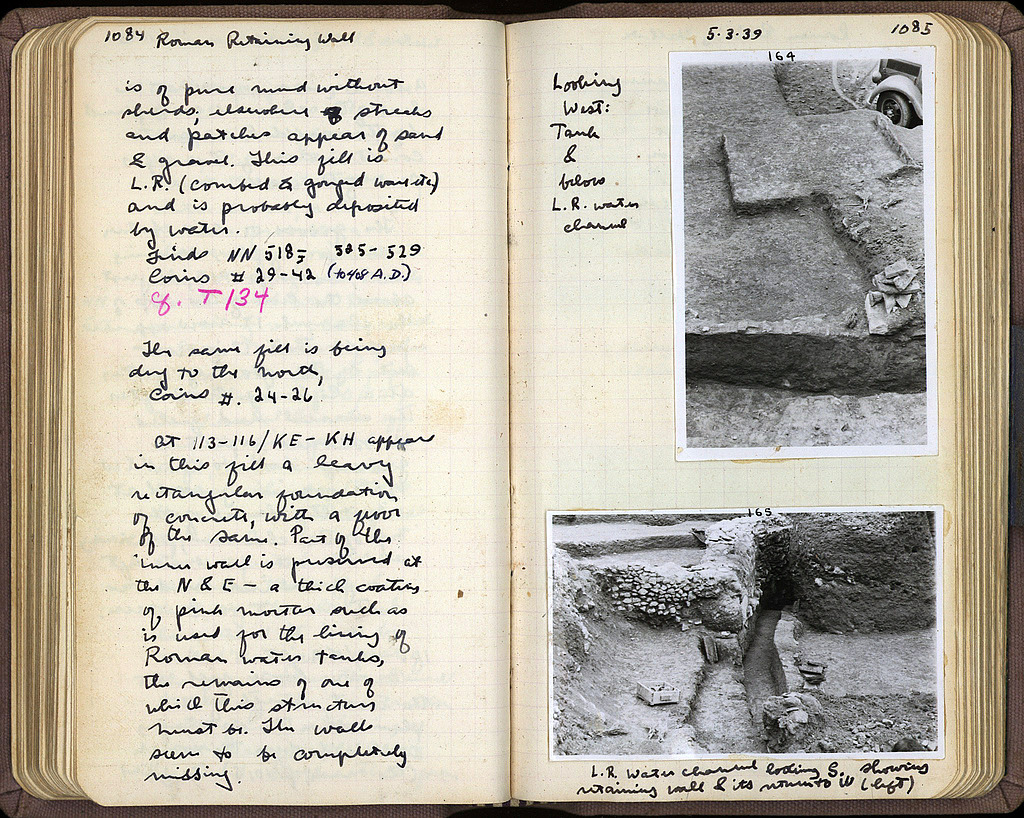 1084 Roman Retaining Wall
is of pure mud without
sherds; elsewhere streaks
and patches appear of sand
& gravel. This fill is
L.R. (combed & gouged ware etc)
and is probably deposited
by water.
Finds NN 518- 525-529
Coins # 29-42 (to 408 A.D.)
cf. T 134
The same fill is being
dug to the north,
Coins #. 24-26
At 113-116/KE-KH appears
in this fill a heavy
rectangular foundation
of concrete, with a floor
of the same. Part of the
inner wall is preserved at
the N & E – a thick coating
of pink mortar such as
is used for the lining of
Roman water tanks,
the remains of one of
which this structure
must be. The walls
seem to be completely
missing.
5·3·39 1085
164
Looking
West:
Tank
&
below
L.R. water
channel
165
L.R. Water channel looking S. showing
retaining wall & its return to W (left)